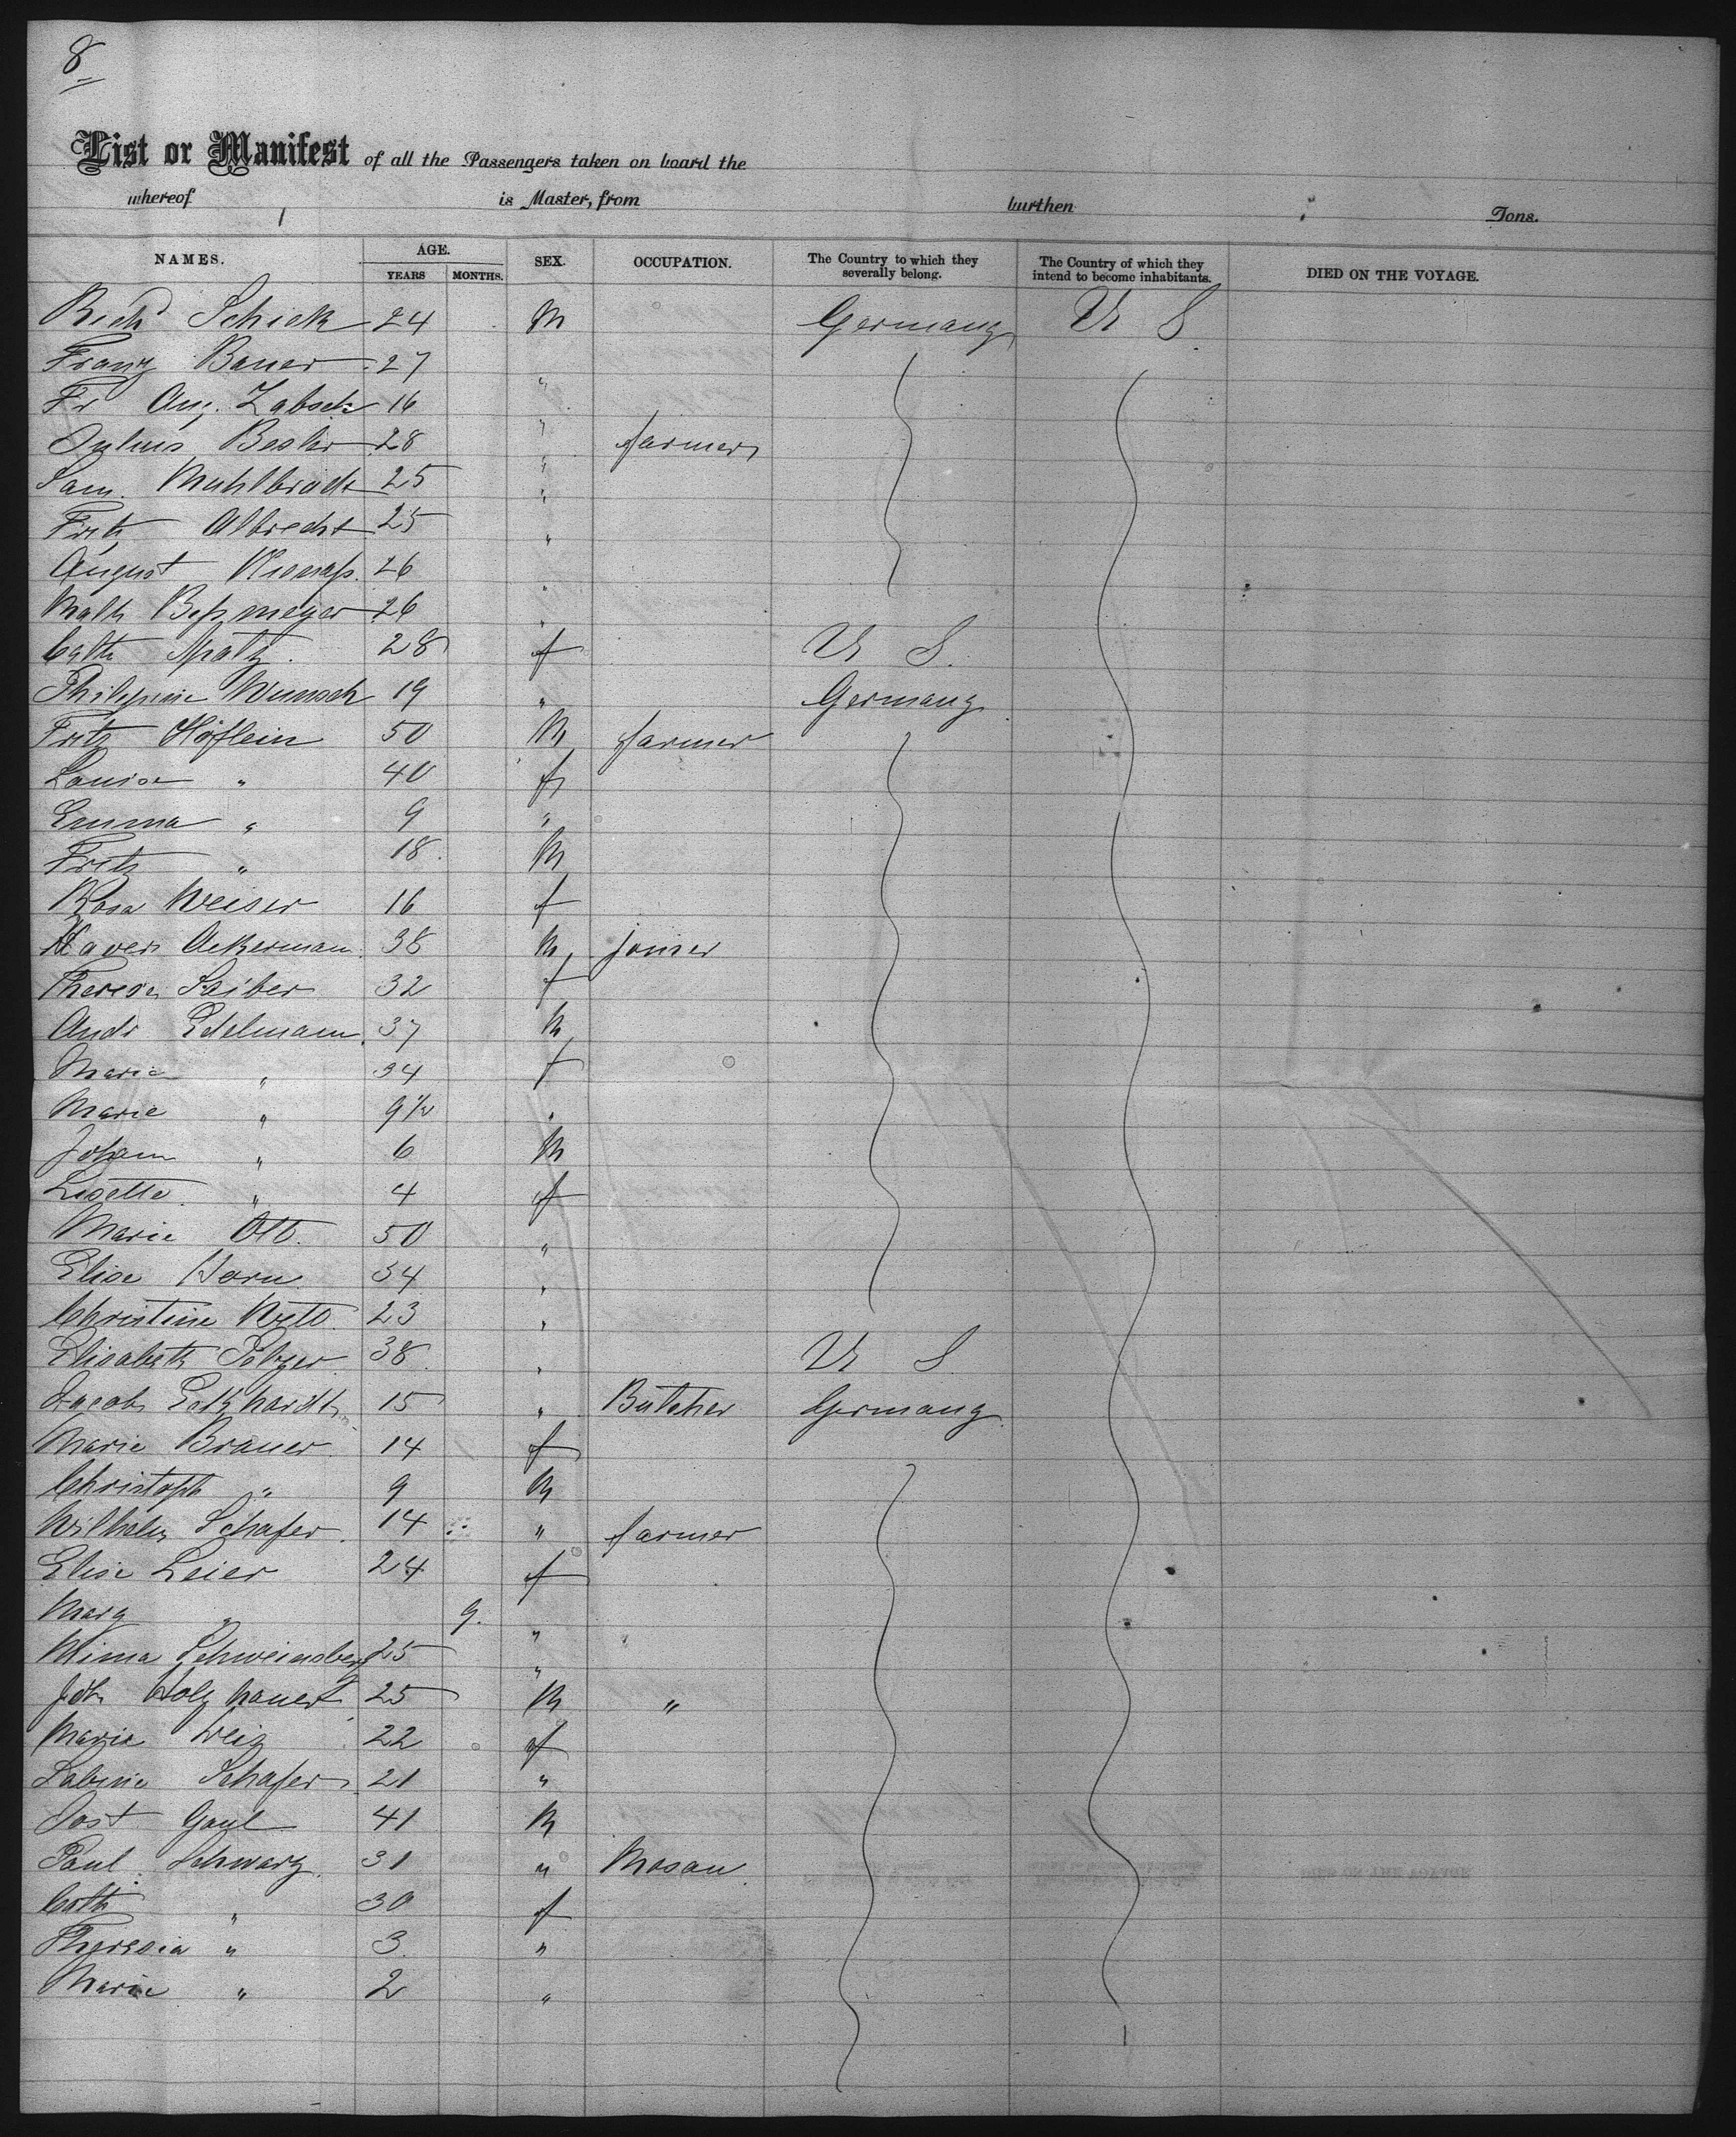 8
List or Manifest of all the Passengers taken on board the
whereof is Master, from burthen Tons.
NAMES. AGE. YEARS MONTHS. SEX. OCCUPATION. The Country to which they severally belong. The Country of which they intend to become inhabitants. DIED ON THE VOYAGE.
Richd Schick 24 M Germany U S
Franz Bauer 27 "
Fr Aug. Zabsch 16 "
Julius Besler 28 " farmer
Sam. Muhlbradt 25 "
Fritz Albrecht 25 "
August 26 "
Math Bessmeyer 26 "
Cath Spatz. 28 f U S.
Philippine Wunsch 19 " Germany
Fritz Höflein 50 M farmer
Louise " 40 f
Emma " 9 "
Fritz " 18. M
Rosa Weiser 16 f
Xaver Ackerman 38 M joiner
Therese Saiber 32 f
Andr Edelmann 37 M
Maria " 34 f
Marie " 9½ "
Johann " 6 M
Lisette " 4 f
Marie Ott. 50 "
Elise Horn 34 "
Christine 23 "
Elisabeth 38 " U S
Jacob Eckhardt 15 " Butcher Germany
Marie Brauer 14 f
Christoph " 9 M
Wilhelm Schafer 14 " farmer
Elise Leier 24 f
Marg " 9. "
Mima Schweinsberg 25 "
Joh Holzhauer 25 M "
Marie Weiz 22 f
Sabine Schafer 21 "
Jost Gaul 41 M
Paul Schwarz 31 " Mason
Cath " 30 f
Theresia " 3 "
Marie " 2 "